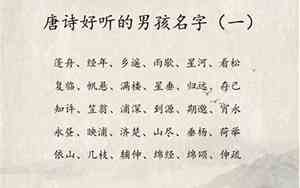 唐诗好听的男孩名字（一）
莲舟、经年、乡遥、雨歇、星河、看松
复临、帆悬、满楼、星垂、归远、存己
知许、笠翁、浦深、到源、朔遨、宵永
永昼、映浦、济楚、山尽、垂杨、荷举
依山、几枝、辅伸、绵经、绵颂、仲疏